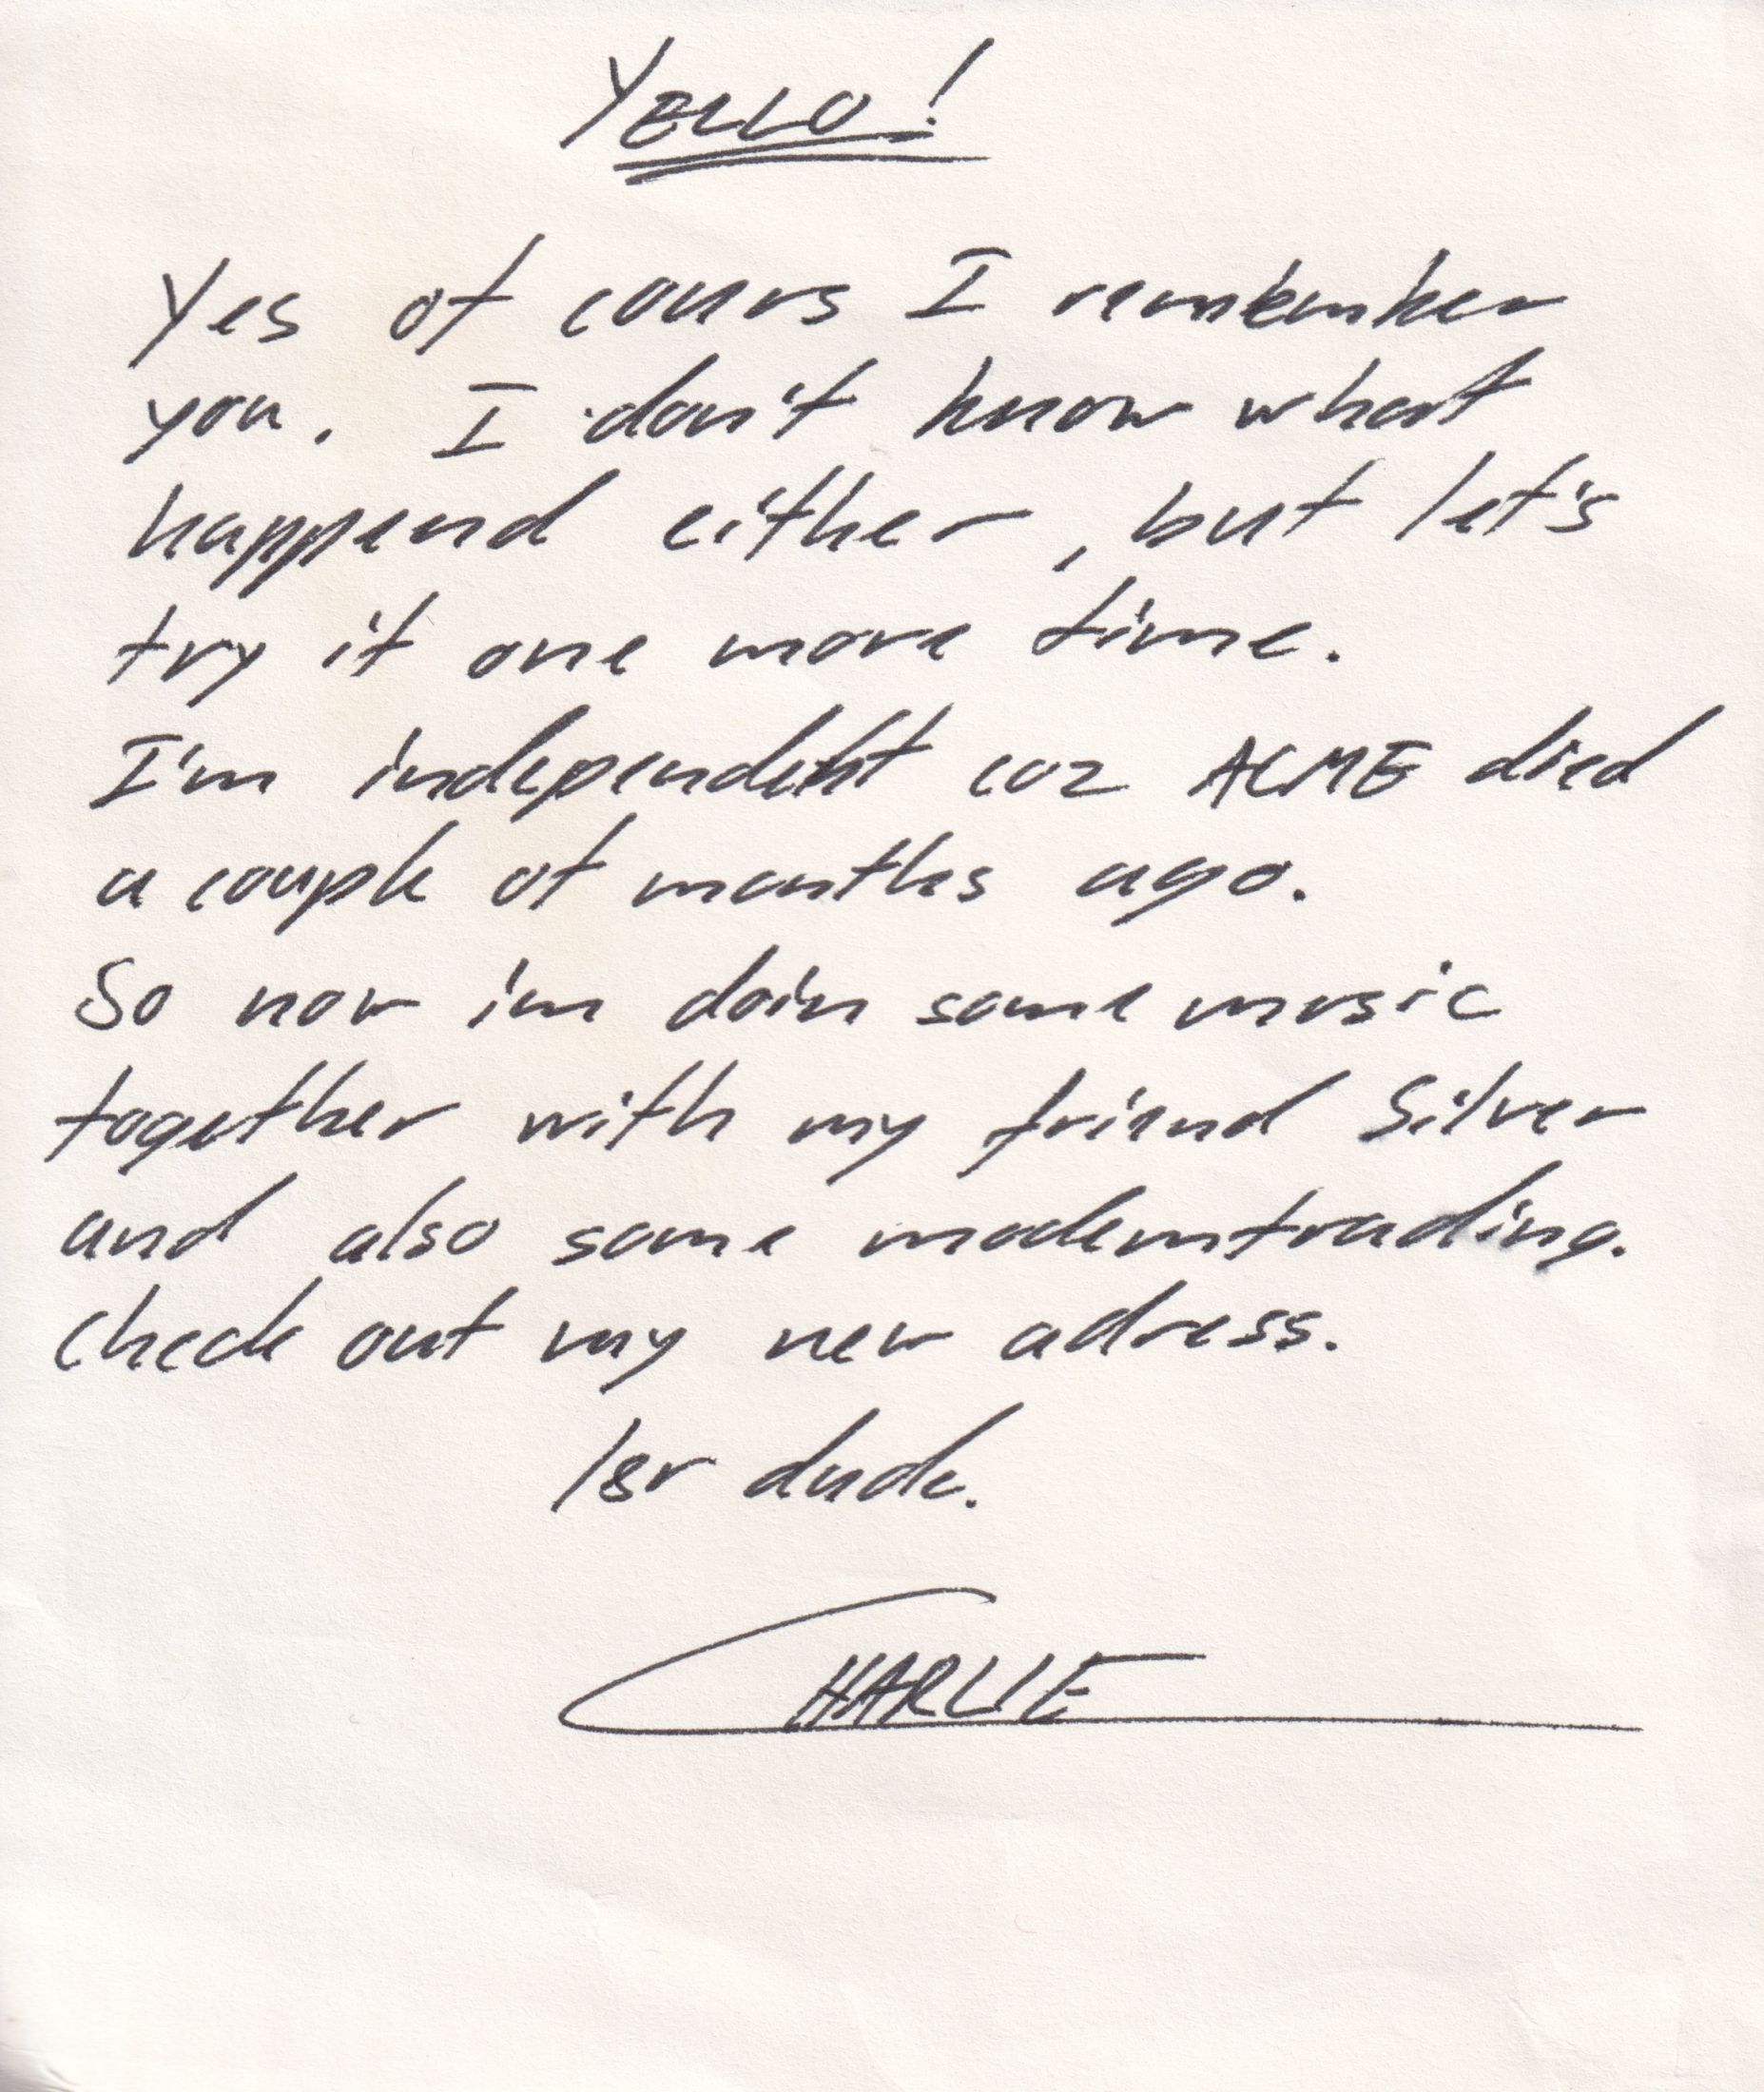 YELLO!
Yes of cours I remember
you. I don't know what
happend either, but let's
try it one more time.
I'm independent coz ACME died
a couple of months ago.
So now im doin some music
together with my friend Silver
and also some modemtrading.
Check out my new adress.
l8r dude.
CHARLIE